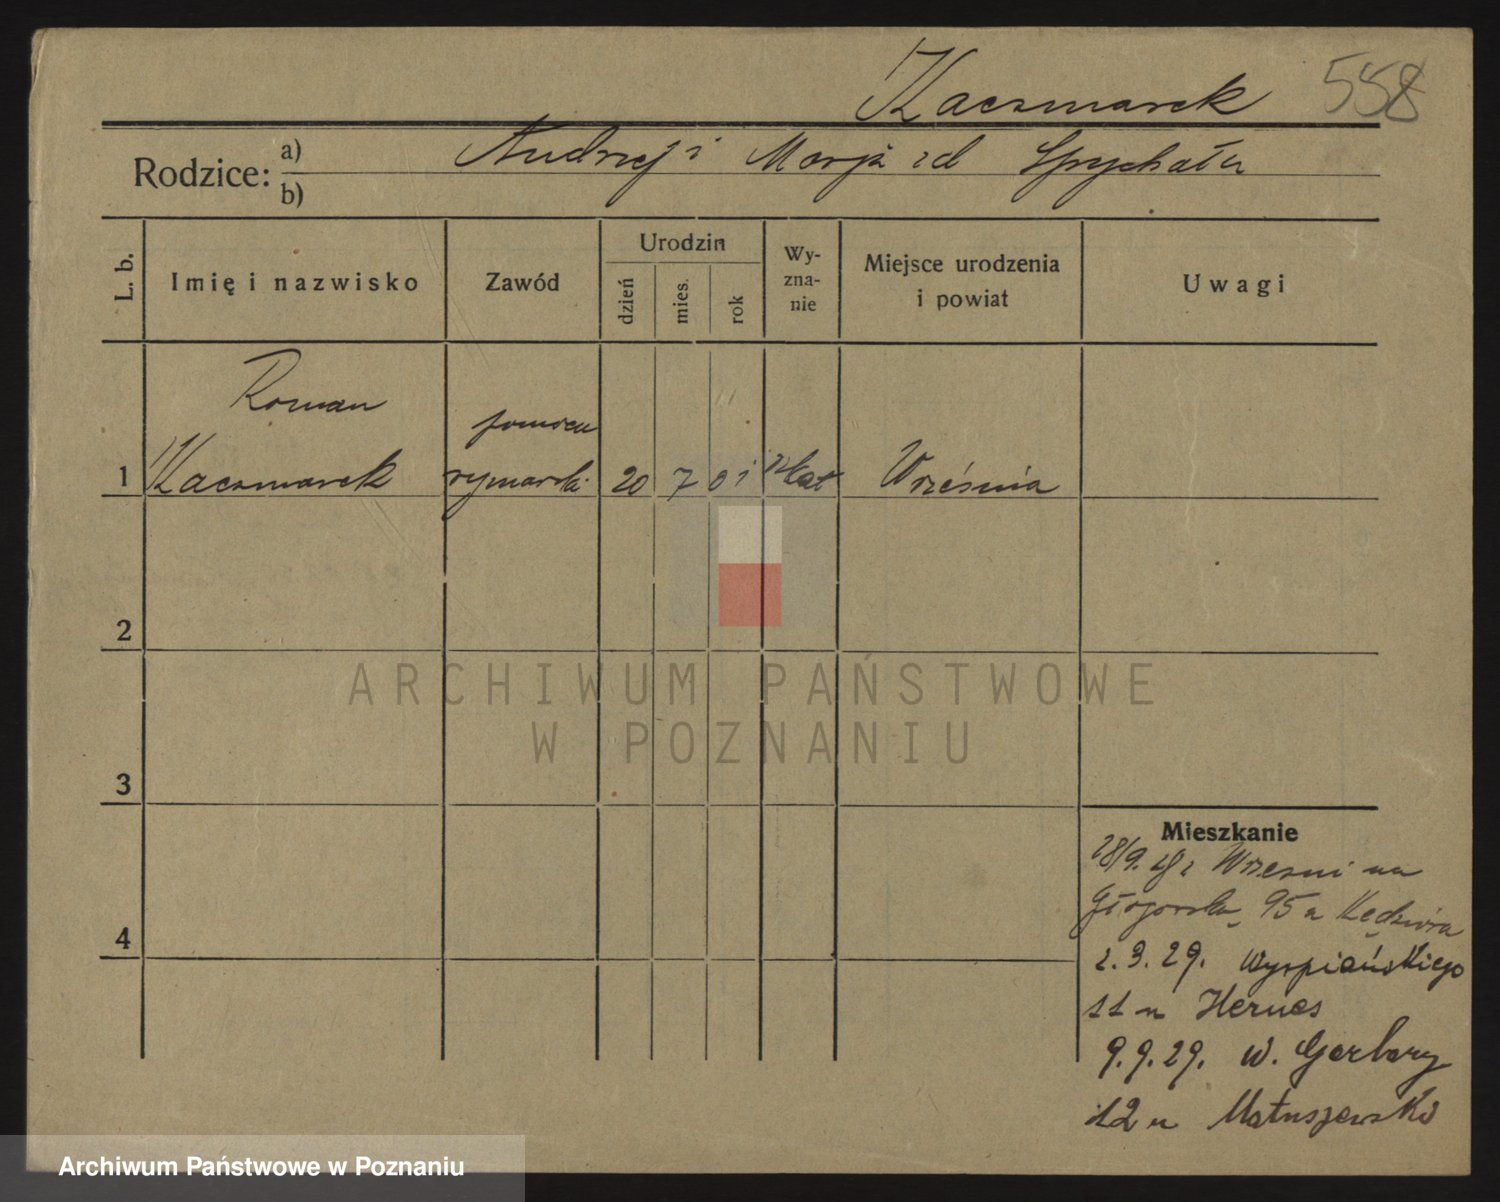 Kaczmarek 558
Rodzice: a) Andrzej i Marja zd Spychała
b)
L. b. Imię i nazwisko Zawód Urodzin dzień mies. rok Wy-zna-nie Miejsce urodzenia i powiat Uwagi
Roman
pomocn
1 Kaczmarek rymarski 20 7 01 rzkat Września
2
ARCHIWUM PAŃSTWOWE
W POZNANIU
3
Mieszkanie
28/9. 28 z Wrześni na
Głogowską 95 u Kędziora
4
2.3.29. Wyspiańskiego
11 u
9.9.29. W. Garbary
12 u Matuszewski
Archiwum Państwowe w Poznaniu